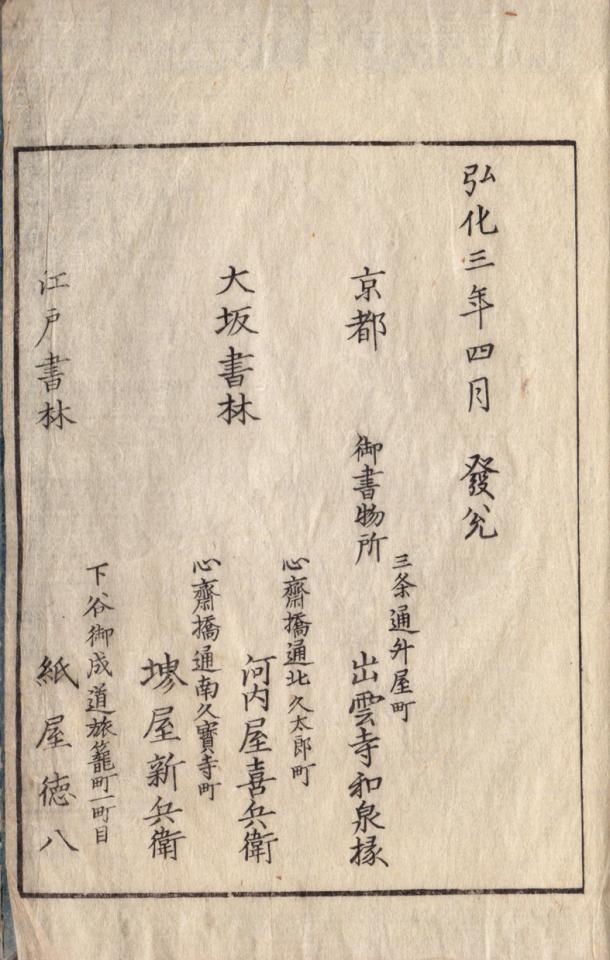 弘化三年四月 發兌
京都 御書物所
三条通升屋町
出雲寺和泉掾
大坂書林
心齋橋通北久太郎町
河内屋喜兵衛
心齋橋通南久寶寺町
堺屋新兵衛
江戸書林
下谷御成道旅籠町一町目
紙屋徳八